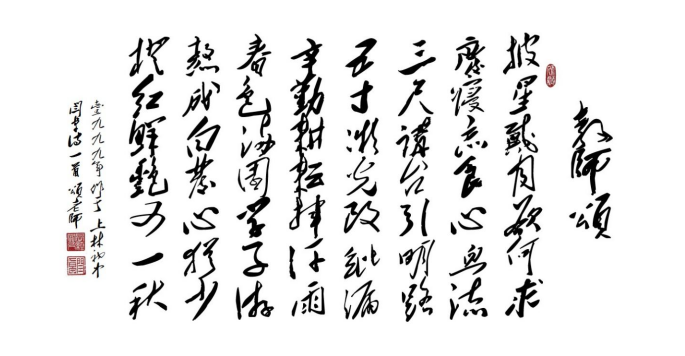 教師頌
披星戴月欲何求
廢寢忘食心血流
三尺講台引明路
五寸光改漏
辛勤耕耘揮汗雨
春色滿園學子游
熬成白发心猶少
橙红鲜艳又一秋
壹九九九年作于上林初中
一首頌老師